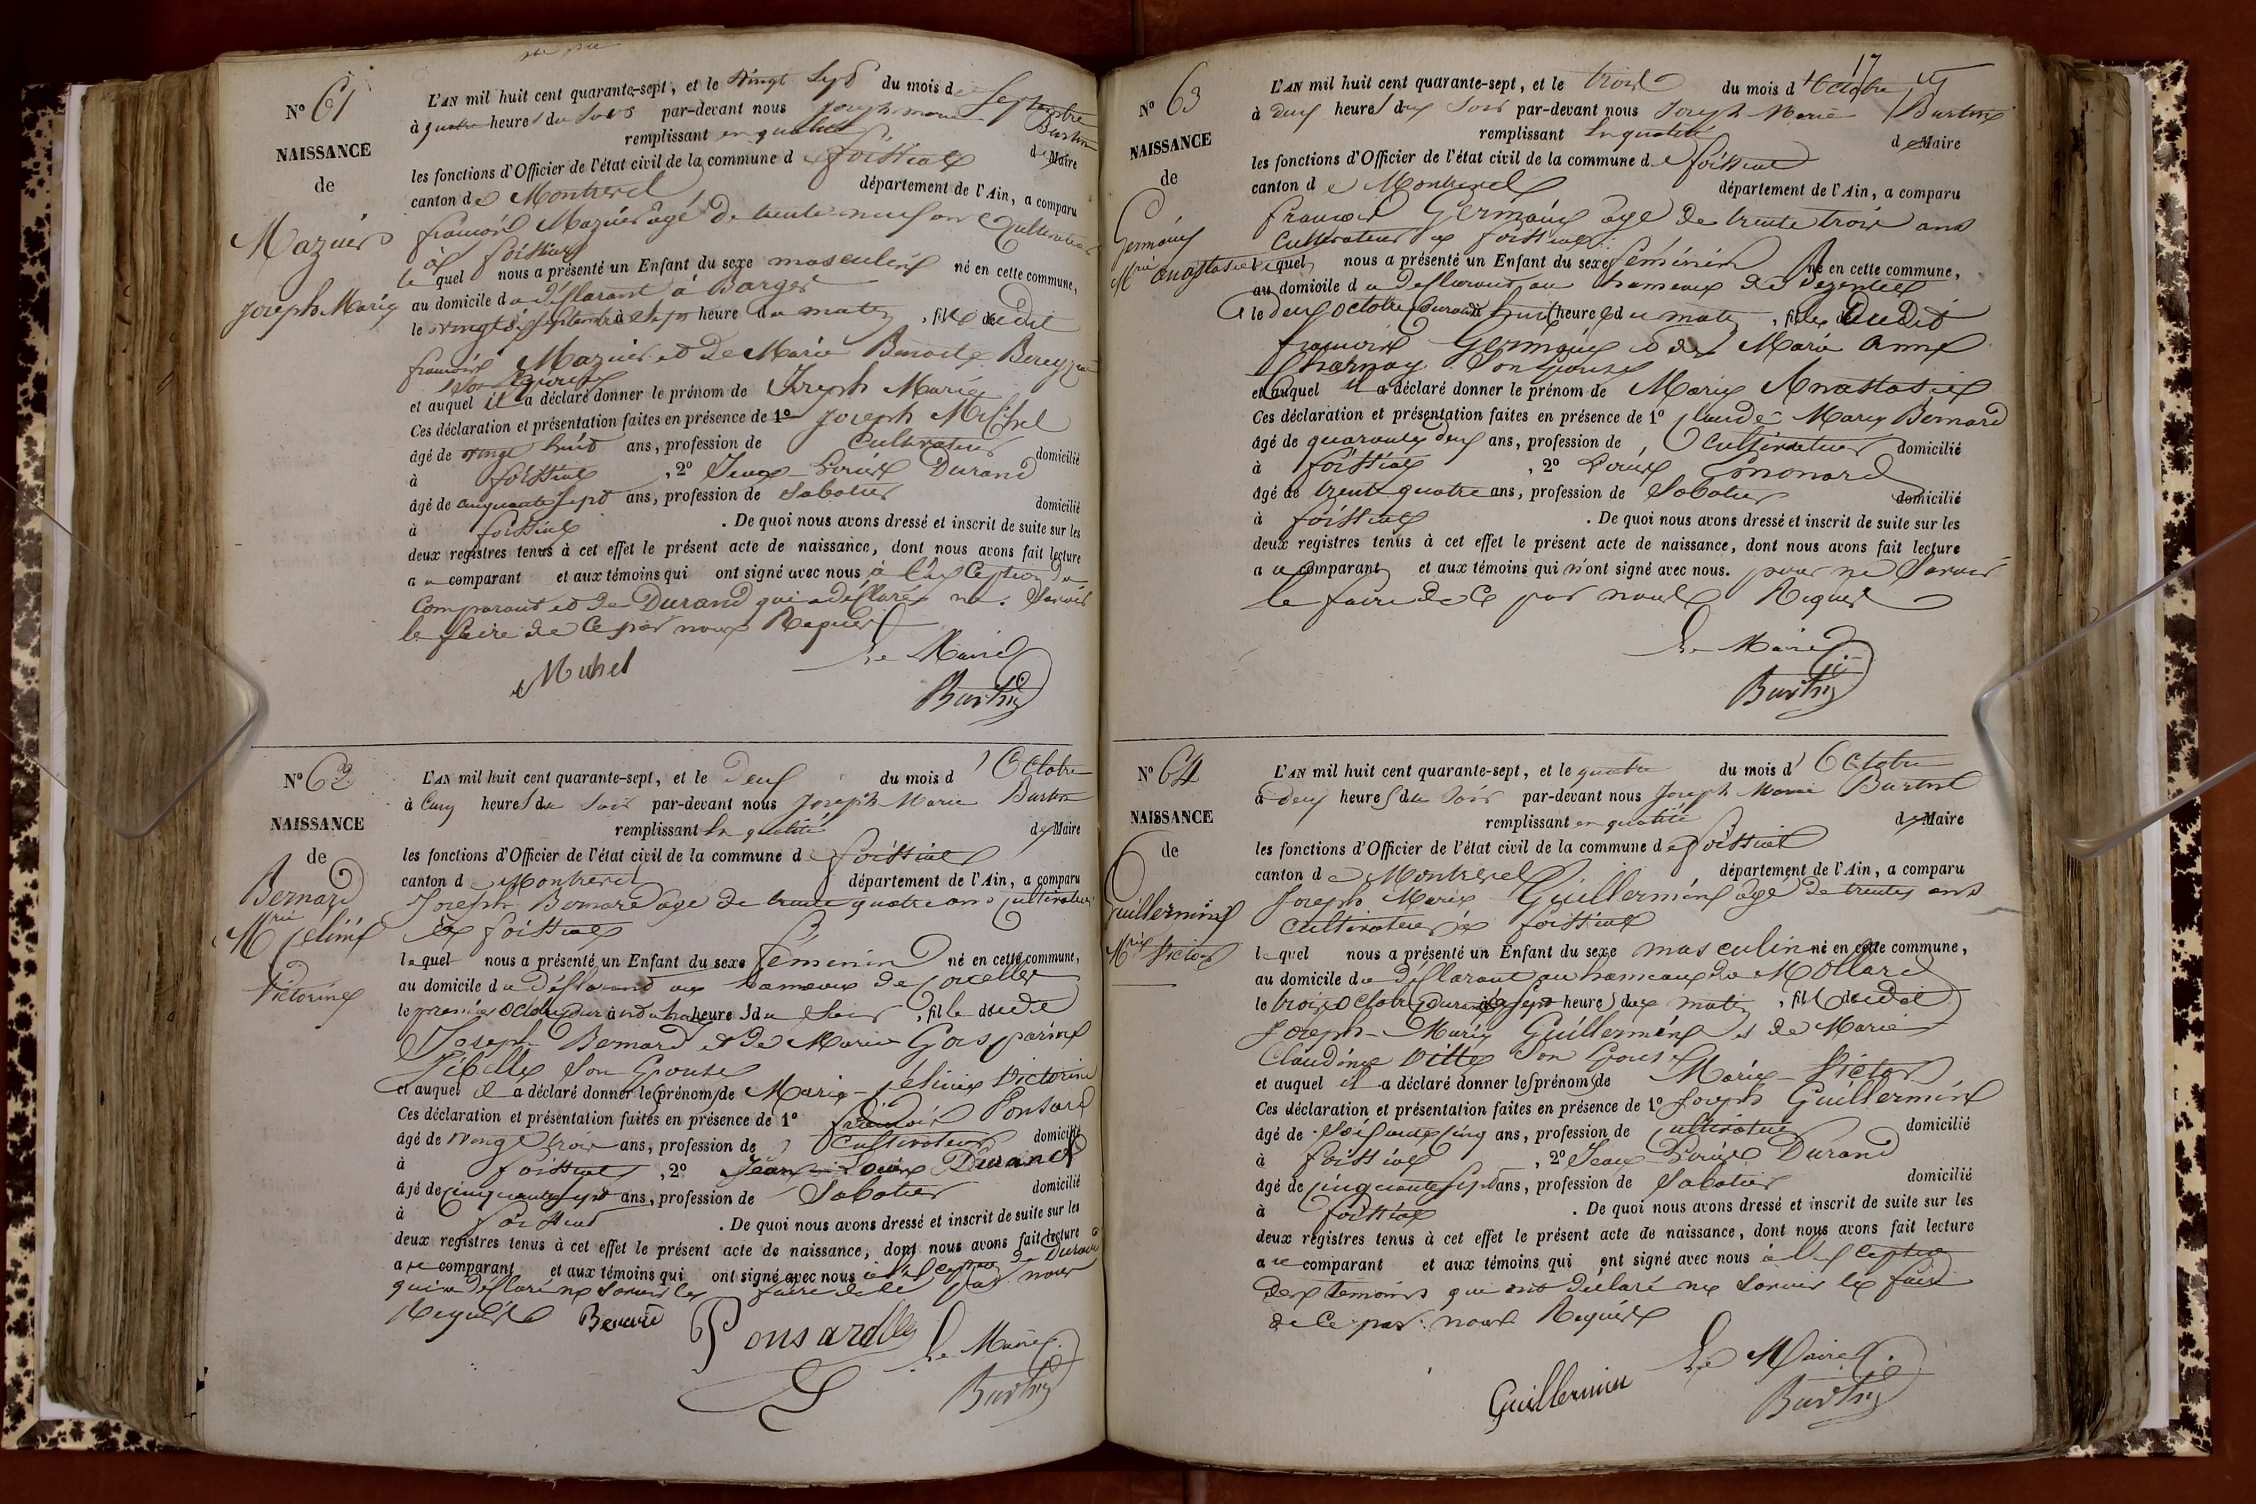 N° 61
NAISSANCE
de
Mazuir
Joseph Marie
L'AN mil huit cent quarante-sept, et le vingt sept du mois de Septembre
à quatre heures du Soir par-devant nous Joseph marie Burtin
remplissant en qualité de Maire
les fonctions d'Officier de l'état civil de la commune de foissiat
canton de Montrevel département de l'Ain, a comparu
francois Mazuir âgé de trente neuf ans Cultivateur
à foissiat
le quel nous a présenté un Enfant du sexe masculin né en cette commune,
au domicile du déclarant à Barges
le vingt Septembre à heure du matin, fils dudit
francois Mazuir et de Marie Benoite
son Epouse
et auquel il a déclaré donner le prénom de Joseph Marie
Ces déclaration et présentation faites en présence de 1° Joseph Michel
âgé de vingt huit ans, profession de Cultivateur domicilié
à foissiat, 2° Jean Louis Durand
âgé de cinquante sept ans, profession de Sabotier domicilié
à foissiat. De quoi nous avons dressé et inscrit de suite sur les
deux registres tenus à cet effet le présent acte de naissance, dont nous avons fait lecture
au comparant et aux témoins qui ont signé avec nous à l'exception du
Comparant et de Durand qui a déclaré ne Savoir
le faire de Ce par nous Requis
Le Maire
Michel
Burtin
N° 62
NAISSANCE
de
Bernard
Mrie feline
Victorine
L'AN mil huit cent quarante-sept, et le Deux du mois d'Octobre
à Cinq heures du Soir par-devant nous Joseph Marie Burtin
remplissant En qualité de Maire
les fonctions d'Officier de l'état civil de la commune de foissiat
canton de Montrevel département de l'Ain, a comparu
Joseph Bernard âgé de trente quatre ans Cultivateur
à foissiat
le quel nous a présenté un Enfant du sexe féminin né en cette commune,
au domicile du déclarant au hameau de
le premier Octobre à heure du Soir, fille dudit
Joseph Bernard et de Marie Gasparine
son Epouse
et auquel il a déclaré donner les prénoms de Marie féline Victorine
Ces déclaration et présentation faites en présence de 1° francois Ponsard
âgé de vingt trois ans, profession de Cultivateur domicilié
à foissiat, 2° Jean Louis Durand
âgé de cinquante sept ans, profession de Sabotier domicilié
à foissiat. De quoi nous avons dressé et inscrit de suite sur les
deux registres tenus à cet effet le présent acte de naissance, dont nous avons fait lecture
au comparant et aux témoins qui ont signé avec nous à l'exception de Durand
qui a déclaré ne Savoir le faire de Ce par nous
Requis
Bernard Ponsard Le Maire
Burtin
17
N° 63
NAISSANCE
de
Germain
Mrie anastasie
L'AN mil huit cent quarante-sept, et le trois du mois d'Octobre
à deux heures du Soir par-devant nous Joseph Marie Burtin
remplissant En qualité de Maire
les fonctions d'Officier de l'état civil de la commune de foissiat
canton de Montrevel département de l'Ain, a comparu
francois Germain âgé de trente trois ans
Cultivateur à foissiat
le quel nous a présenté un Enfant du sexe féminin né en cette commune,
au domicile du déclarant au hameau de
le deux octobre courant à huit heures du matin, fille Dudit
francois Germain et de Marie Anne
Charnay Son Epouse
et auquel il a déclaré donner le prénom de Marie Anastasie
Ces déclaration et présentation faites en présence de 1° Claude Marie Bernard
âgé de quarante deux ans, profession de Cultivateur domicilié
à foissiat, 2° Louis monard
âgé de trente quatre ans, profession de Sabotier domicilié
à foissiat. De quoi nous avons dressé et inscrit de suite sur les
deux registres tenus à cet effet le présent acte de naissance, dont nous avons fait lecture
au comparant et aux témoins qui n'ont signé avec nous. pour ne Savoir
le faire de Ce par nous Requis
Le Maire
Burtin
N° 64
NAISSANCE
de
Guillermin
Mrie Victor
L'AN mil huit cent quarante-sept, et le quatre du mois d'Octobre
à deux heures du Soir par-devant nous Joseph Marie Burtin
remplissant en qualité de Maire
les fonctions d'Officier de l'état civil de la commune de foissiat
canton de Montrevel département de l'Ain, a comparu
Joseph Marie Guillermin âgé de trente ans
Cultivateur à foissiat
le quel nous a présenté un Enfant du sexe masculin né en cette commune,
au domicile du déclarant au hameau du Mollard
le trois Octobre courant à Sept heures du matin, fils dudit
Joseph Marie Guillermin et de Marie
Claudine Vitte Son Epouse
et auquel il a déclaré donner les prénoms de Marie Victor
Ces déclaration et présentation faites en présence de 1° Joseph Guillermin
âgé de Soixante cinq ans, profession de Cultivateur domicilié
à foissiat, 2° Jean Louis Durand
âgé de cinquante sept ans, profession de Sabotier domicilié
à foissiat. De quoi nous avons dressé et inscrit de suite sur les
deux registres tenus à cet effet le présent acte de naissance, dont nous avons fait lecture
au comparant et aux témoins qui ont signé avec nous à l'exception
des temoins qui ont déclaré ne Savoir le faire
de Ce par nous Requis
Le Maire
Guillermin Burtin